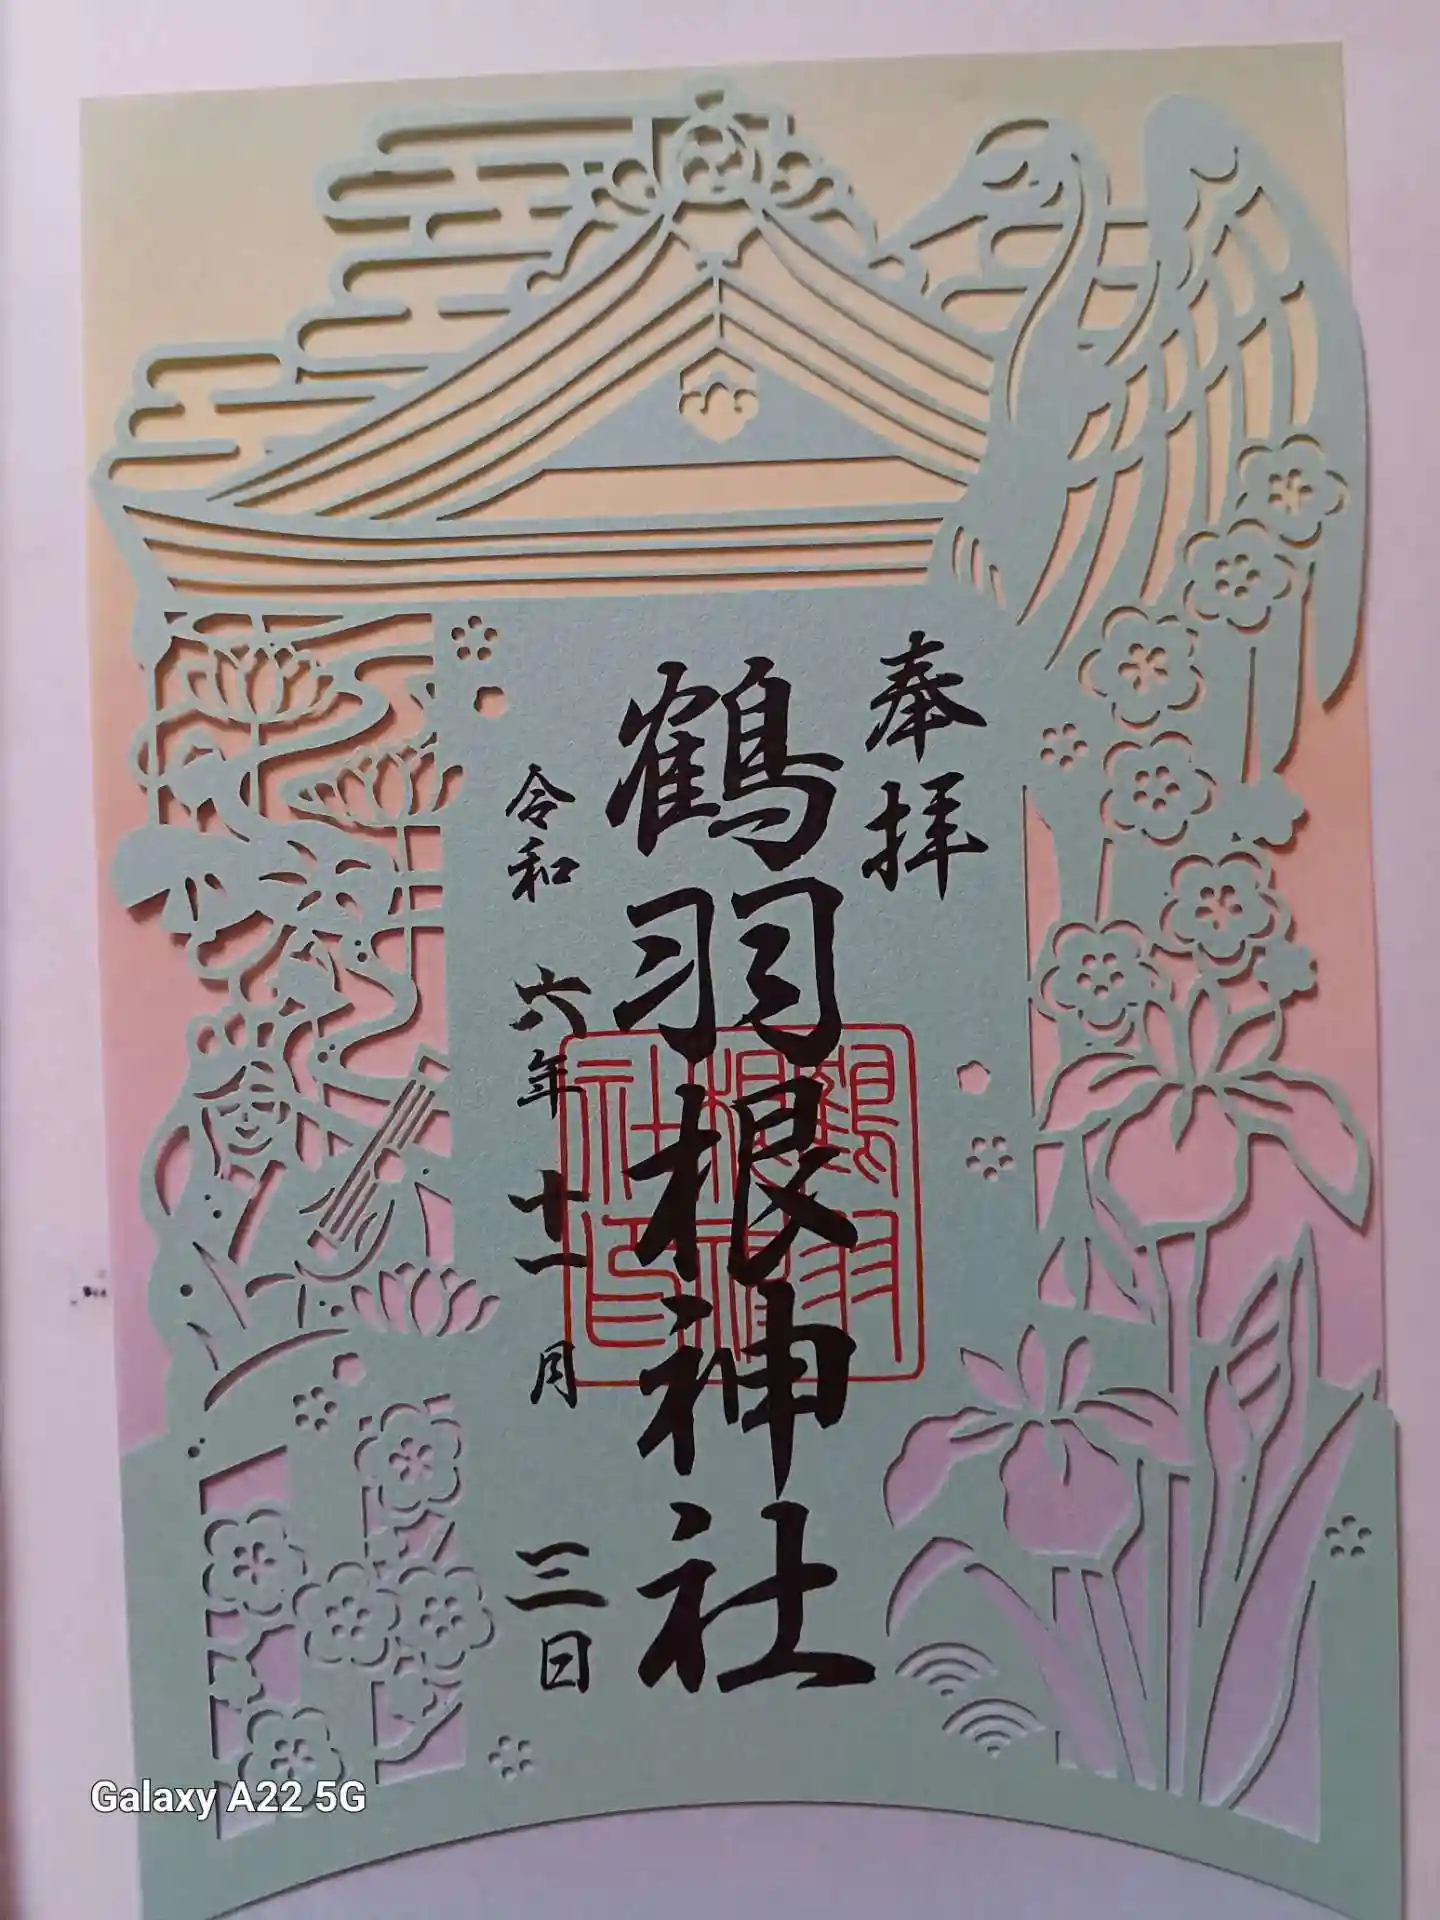 奉拝
鶴羽根神社
令和六年十一月三日
鶴羽根神社印
Galaxy A22 5G